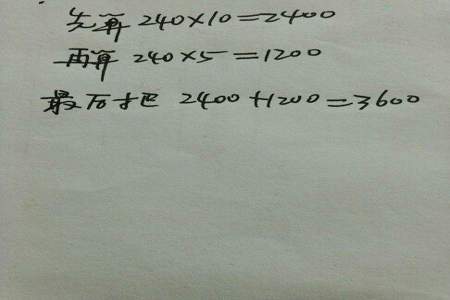 先算 240×10=2400
再算 240×5=1200
最后把 2400+1200=3600